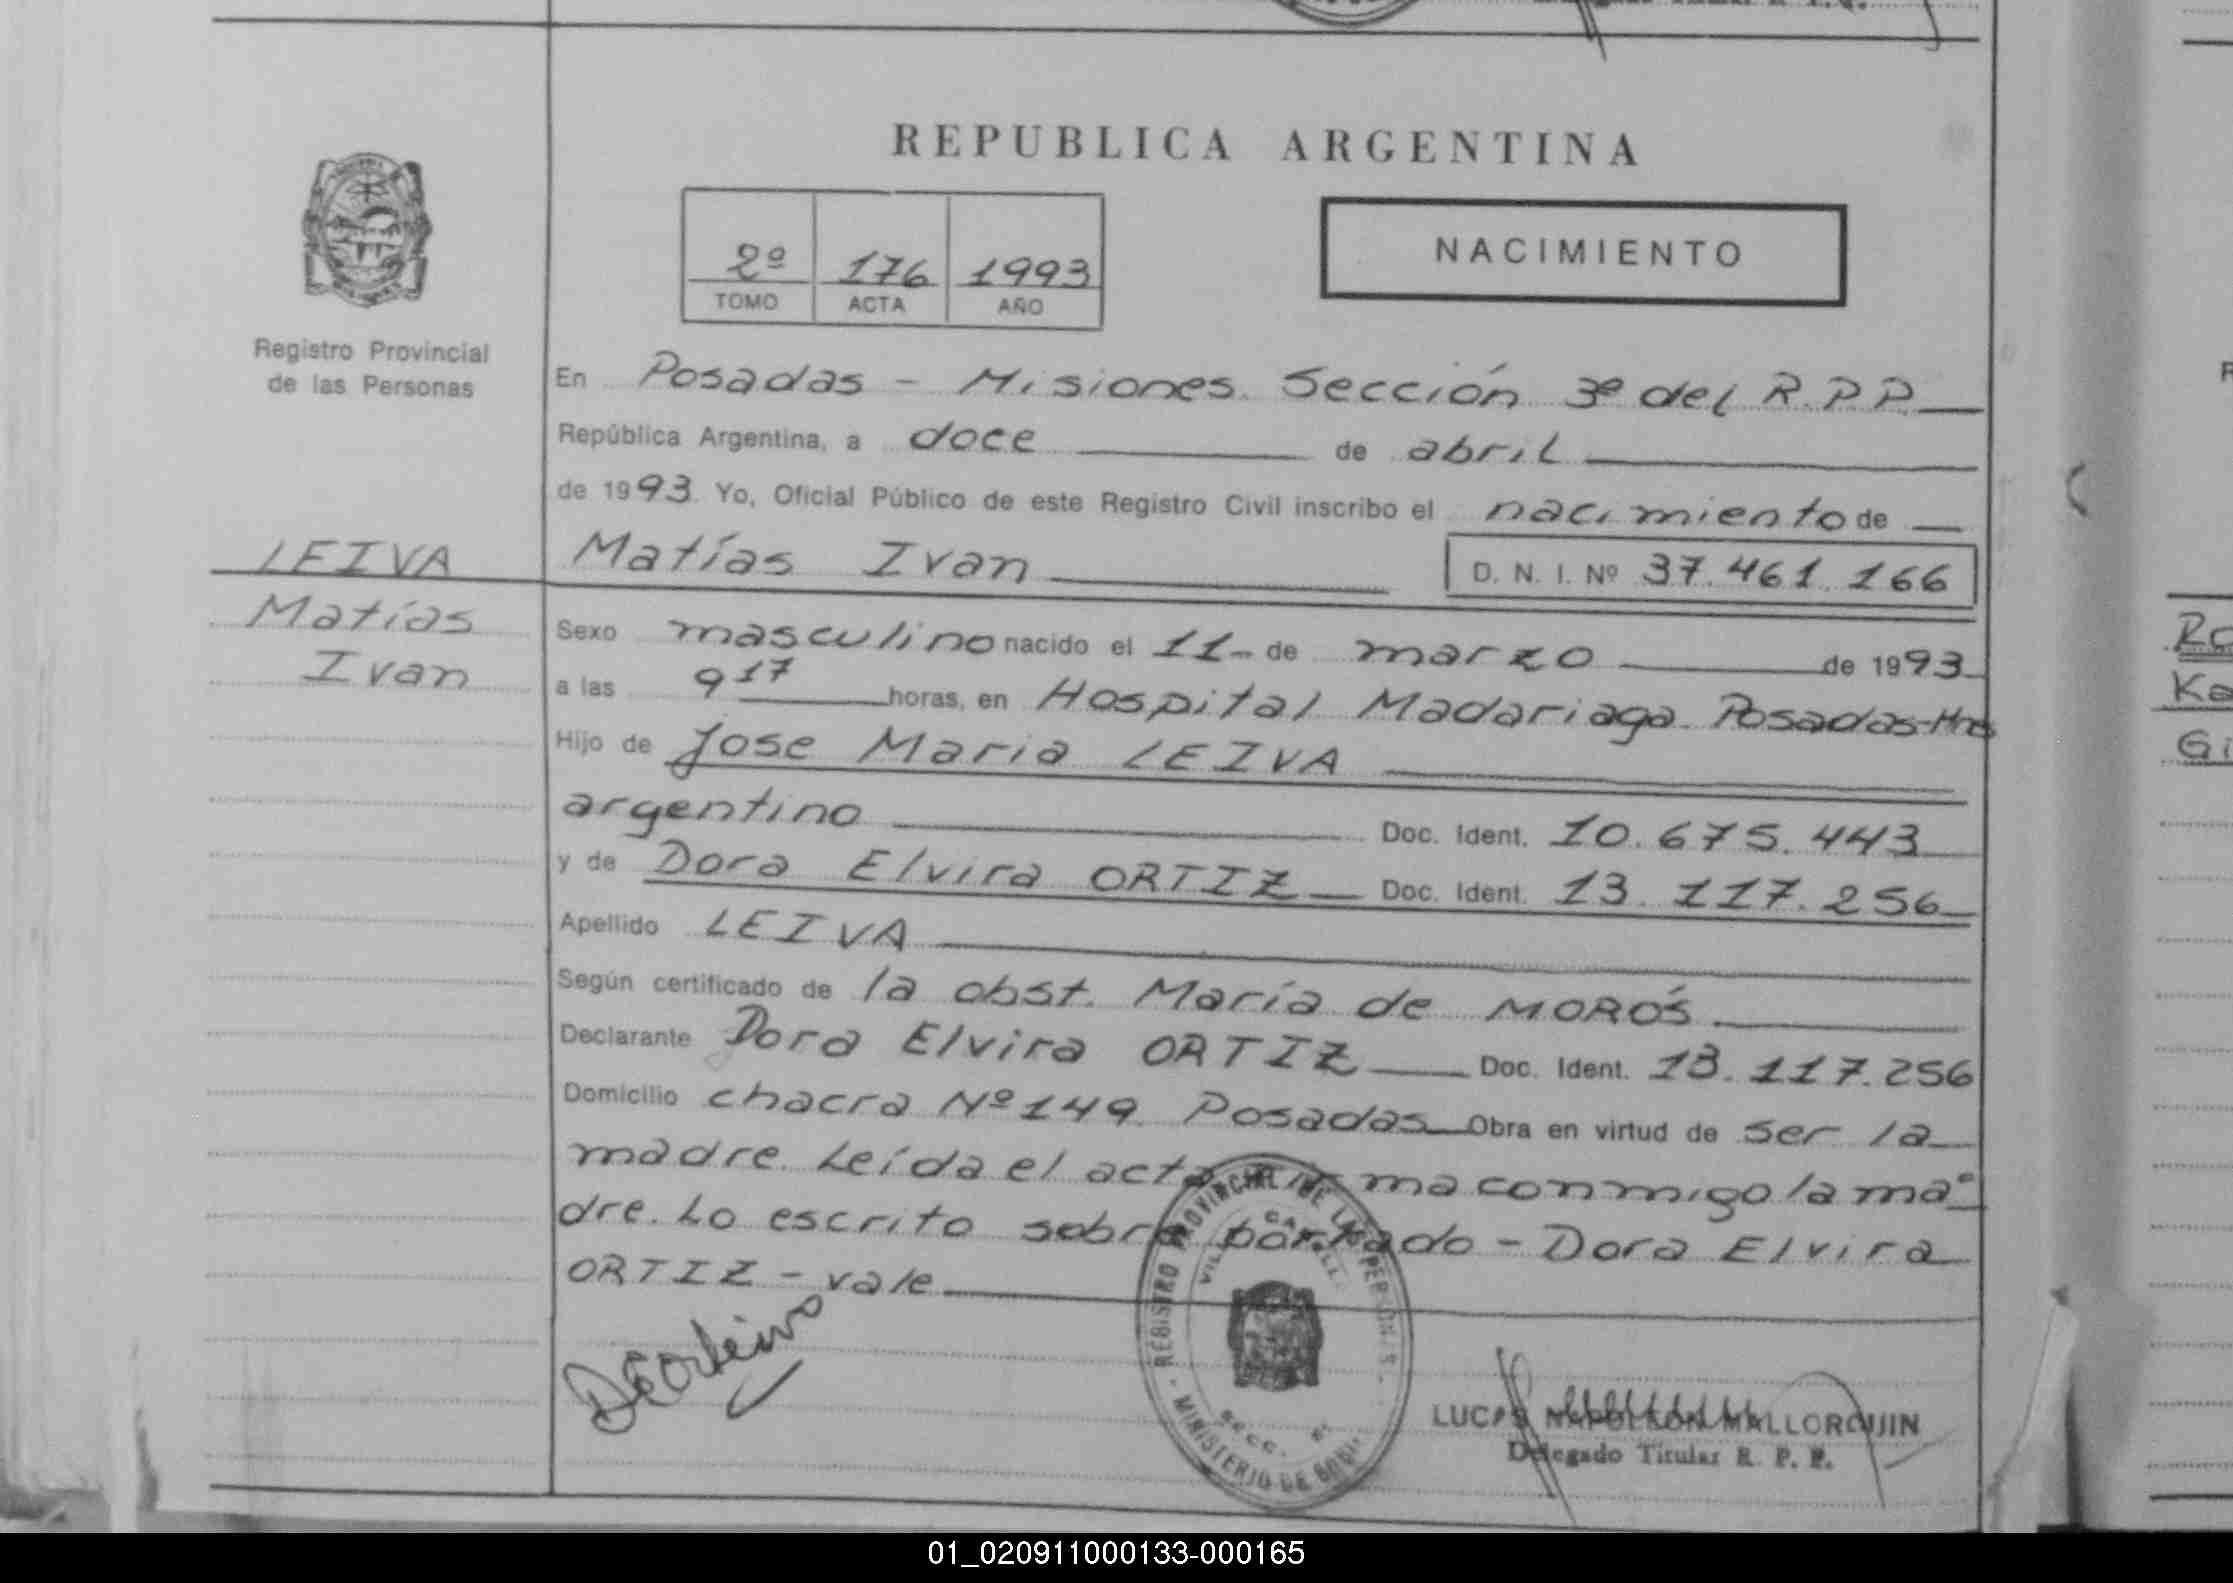 REPUBLICA ARGENTINA
2º 176 1993
TOMO ACTA AÑO
NACIMIENTO
Registro Provincial
de las Personas
En Posadas - Misiones. Sección 3º del R.P.P.
República Argentina, a doce de abril
de 1993. Yo, Oficial Público de este Registro Civil inscribo el nacimiento de
LEIVA
Matías
Ivan
Matías Ivan D. N. I. Nº 37.461.166
Sexo masculino nacido el 11 - de marzo de 1993
a las 9 17 horas, en Hospital Madariaga. Posadas - Mnes
Hijo de Jose Maria LEIVA
argentino Doc. Ident. 10.675.443
y de Dora Elvira ORTIZ Doc. Ident. 13.117.256
Apellido LEIVA
Según certificado de la obst. María de MORÓS
Declarante Dora Elvira ORTIZ Doc. Ident. 13.117.256
Domicilio chacra Nº 149. Posadas Obra en virtud de ser la
madre. Leída el acta firma conmigo la ma-
dre. Lo escrito sobre borrado - Dora Elvira
ORTIZ - vale
REGISTRO PROVINCIAL DE LAS PERSONAS
SECC.
MINISTERIO DE GOB
LUCAS NAPOLEON MALLORQUIN
Delegado Titular R. P. P.
Ka
Gi
01_020911000133-000165